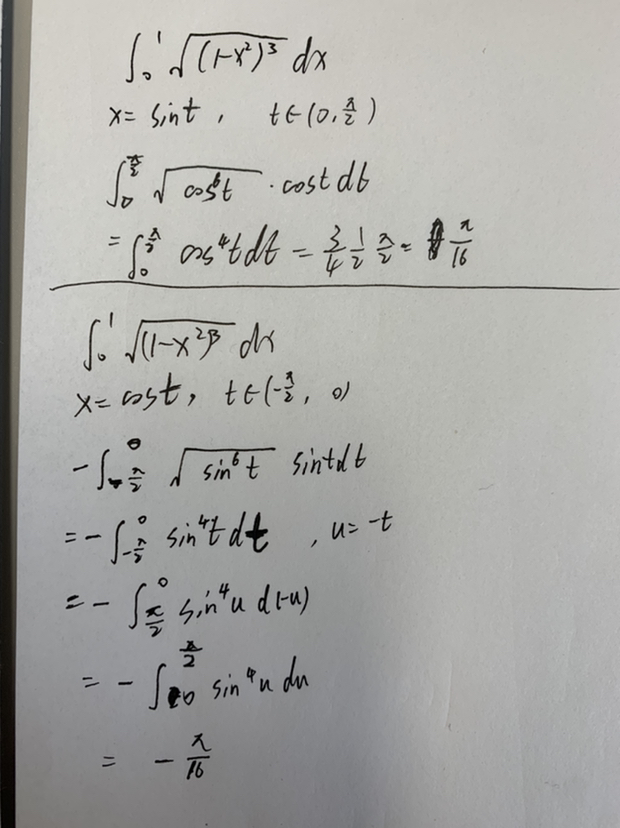 ∫₀¹ √((1-x²)³) dx
x = sint , t∈(0, π/2)
∫₀^(π/2) √(cos⁶t) · cost dt
= ∫₀^(π/2) cos⁴t dt = 3/4 1/2 π/2 = π/16
∫₀¹ √((1-x²)³) dx
x = cost, t∈(-π/2, 0)
-∫_(-π/2)^0 √(sin⁶t) sint dt
= -∫_(-π/2)^0 sin⁴t dt , u = -t
= -∫_(π/2)^0 sin⁴u d(-u)
= -∫₀^(π/2) sin⁴u du
= -π/16